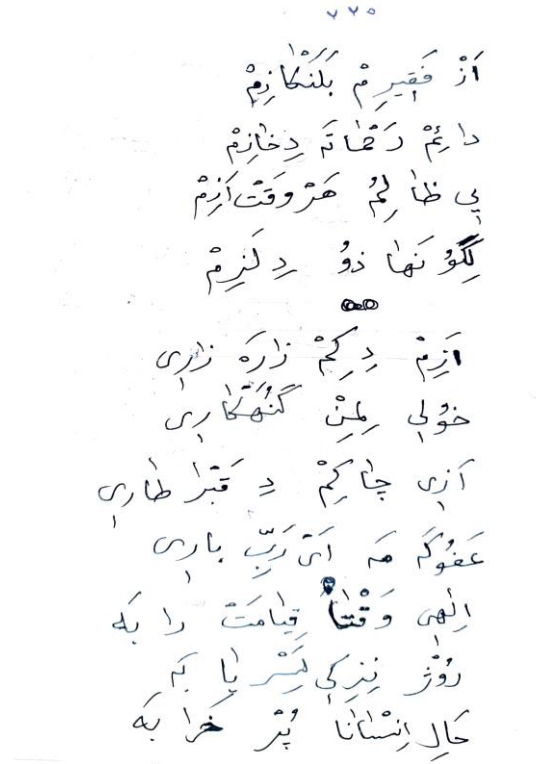 ٧٢٥
اَزْ فَقِيرِمْ بَلَنْگَازِمْ
دائِمْ رَحْمَاتَه دِخٰازِمْ
پِی ظٰالِمُ هَرْوَقْتْ اَزِمْ
لِگُونَهٰا ذوُ دِلَنِرِمْ
اَزِمْ دِكِمْ زٰارَه زٰارِی
خوُلِی لِمِنْ گُنَهْكٰارِی
اَزِی چٰا كِمْ دِ قَبْرٰا طٰارِی
عَفُوكَه مَه اَیْ رَبِّ بارِی
اِلٰهِی وَقْتٰا قِيٰامَتْ رٰا بَه
رُوْژْ نِزِكِی لِسَرْ پٰا بَه
حَالِ اِنْسٰانٰا پُرْ خَرٰا بَه